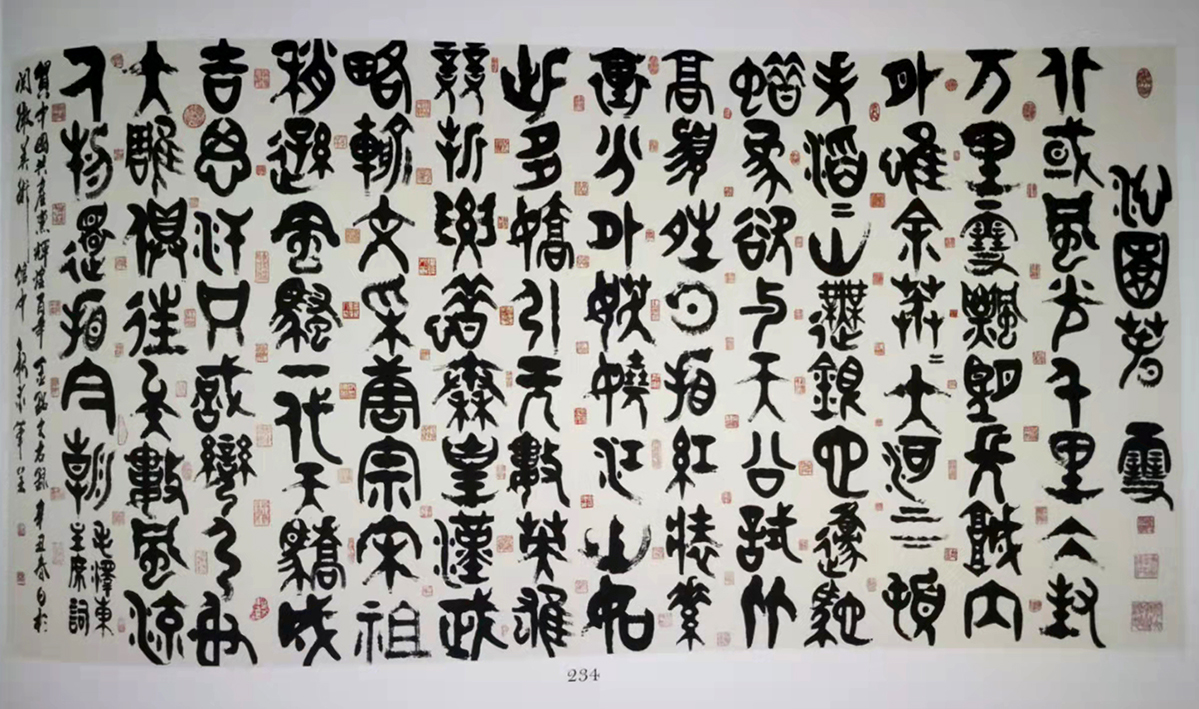 沁園春 雪
北國風光千里冰封
万里雪飄望長城内
外唯余莽〻大河上下頓
失滔〻山舞銀蛇原馳
蠟象欲与天公試比
高須晴日看紅裝素
裹分外妖嬈江山如
此多嬌引无數英雄
競折腰惜秦皇漢武
略輸文采唐宗宋祖
稍遜風騷一代天驕成
吉思汗只識彎弓射
大雕俱往矣數風流
人物還看今朝 毛澤東
主席詞
賀中國共產黨輝煌百年 辛丑春日於
234